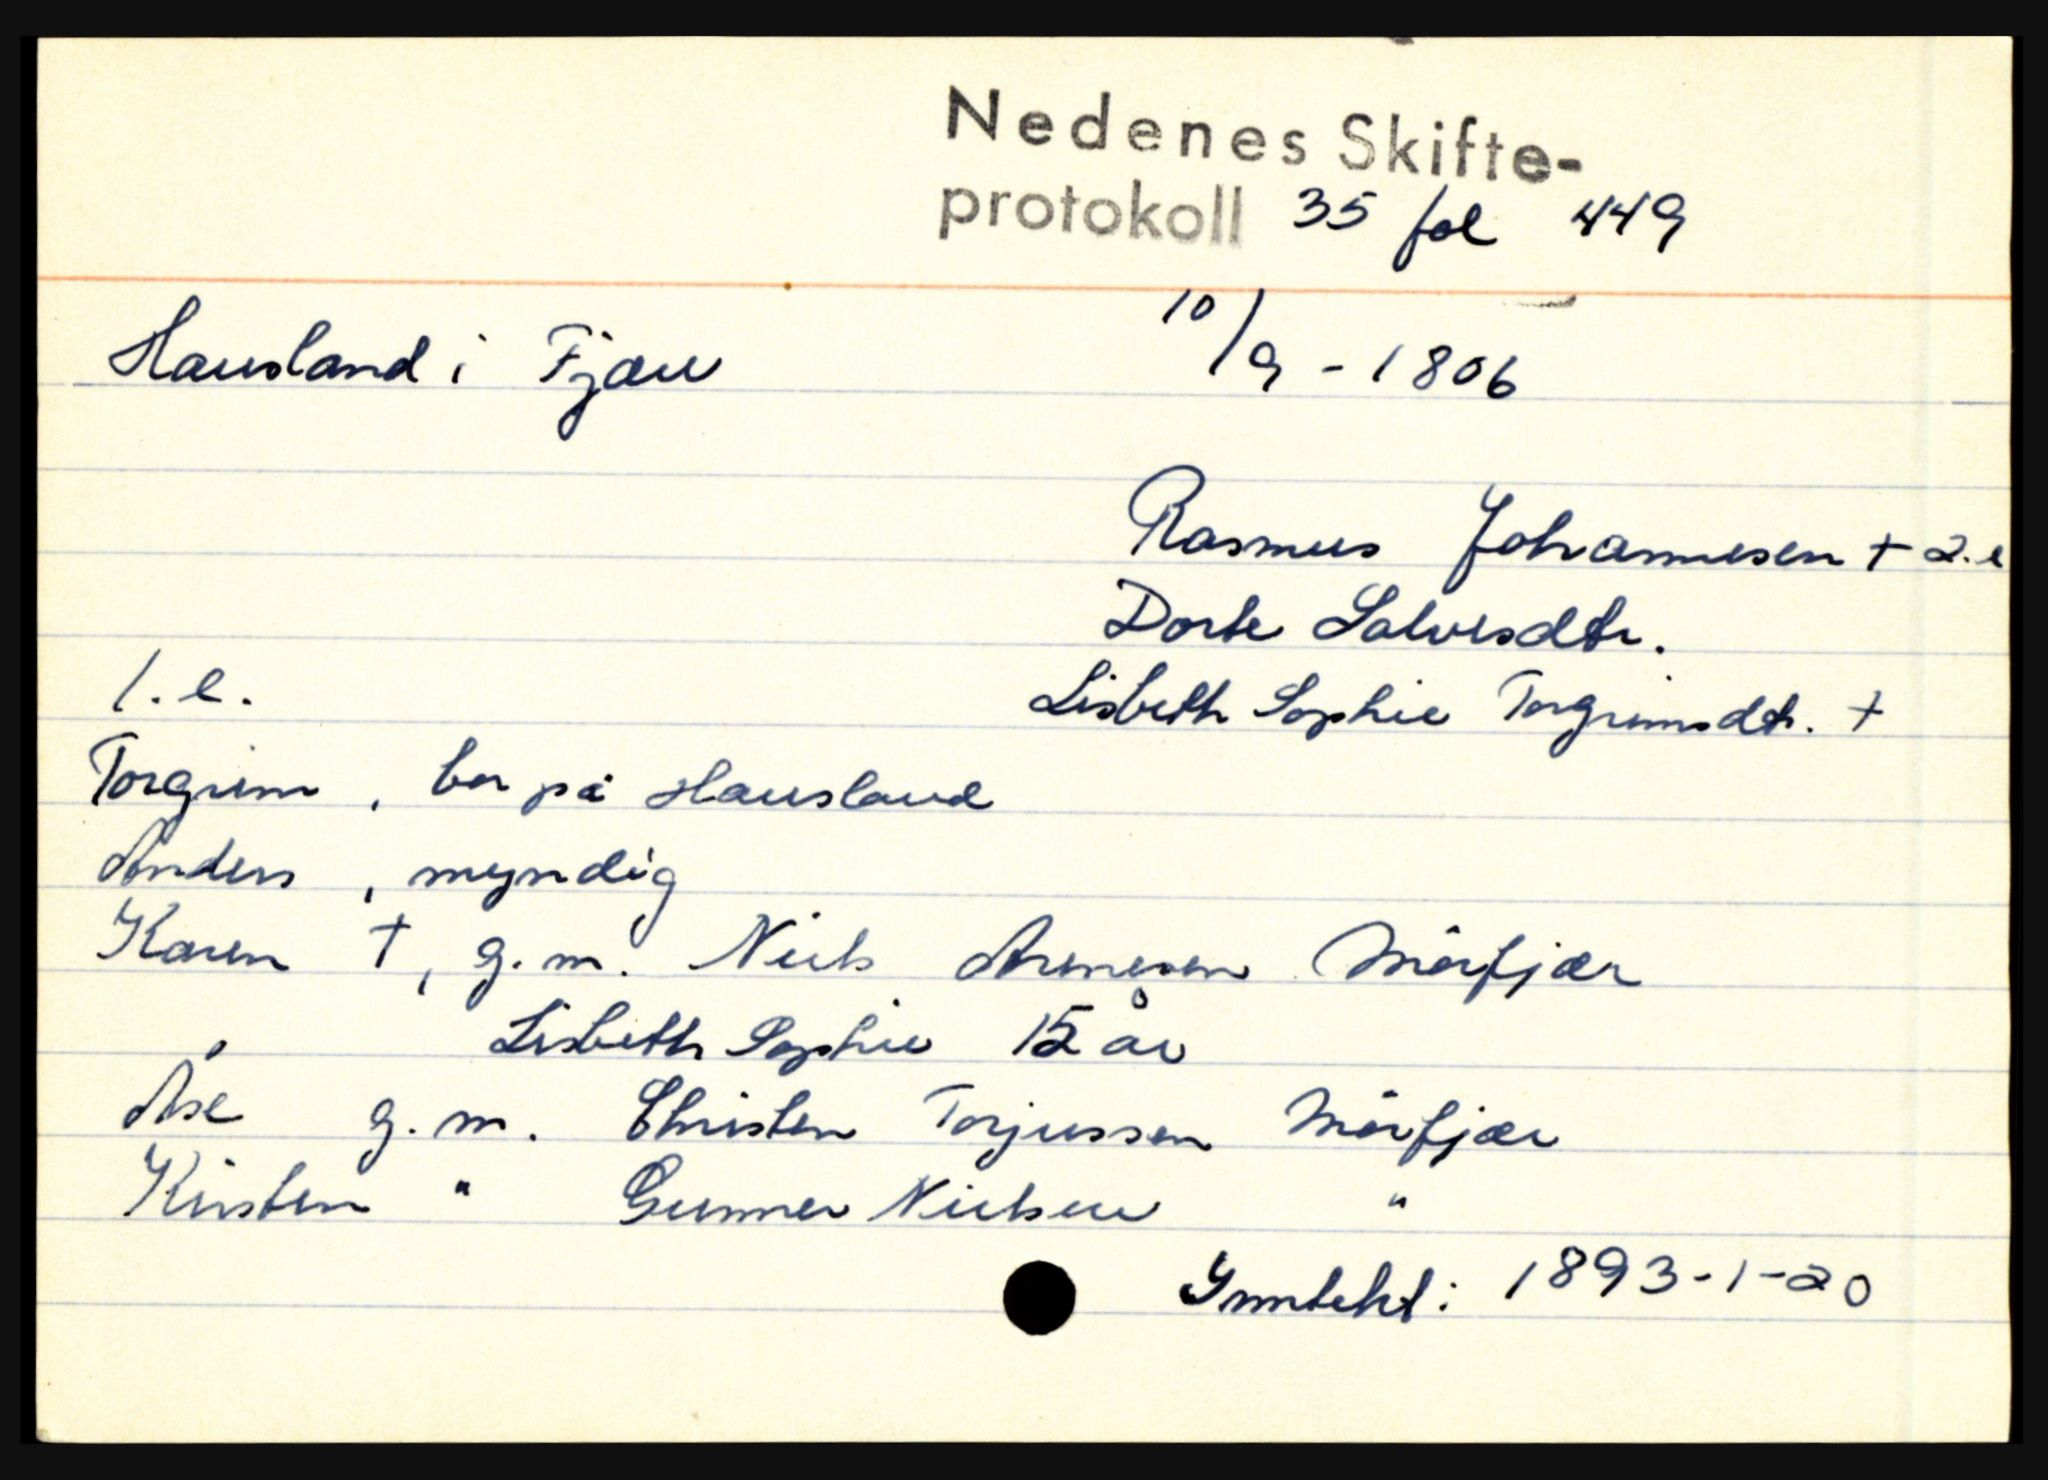 Nedenes Skifte-
protokoll 35 fol 449
Hausland i Fjære 10/9 - 1806
Rasmus Johannesen + 2.e
Dorte Salvesdtr.
1.e. Lisbeth Sophie Torgrimsdtr. +
Torgrim, bor på Hausland
Anders, myndig
Karen +, g.m. Niels Arnesen Mörfjær
Lisbeth Sophie 15 år
Åse g.m. Christen Torjussen Mörfjær
Kirsten " Gunner Nielsen "
Inntekt: 1893-1-20